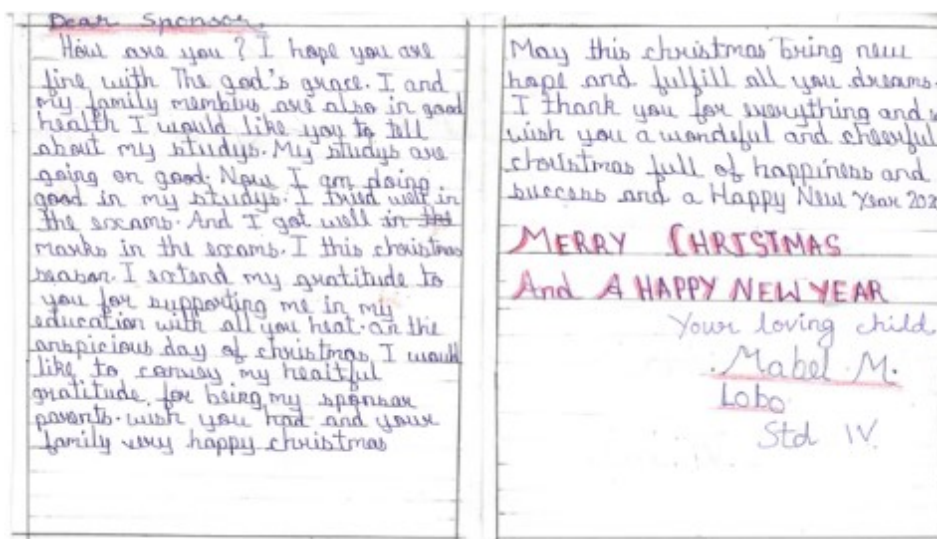 Dear Sponsor,
How are you? I hope you are
fine with The god's grace. I and
my family members are also in good
health I would like you to tell
about my studys. My studys are
going on good. Now I am doing
good in my studys. I tried well in
the exams. And I got well in the
marks in the exams. I this christmas
season. I extend my gratitude to
you for supporting me in my
education with all you heat. on the
anspicious day of christmas, I would
like to convey my heaitful
gratitude, for being my sponsar
parents. wish you had and your
family very happy christmas
May this christmas bring new
hope and fulfill all you dreams.
I thank you for everything and
wish you a wondeful and cheerful
christmas full of happiness and
success and a Happy New Year
MERRY CHRISTMAS
And A HAPPY NEW YEAR
Your loving child,
Mabel M.
Lobo
Std IV